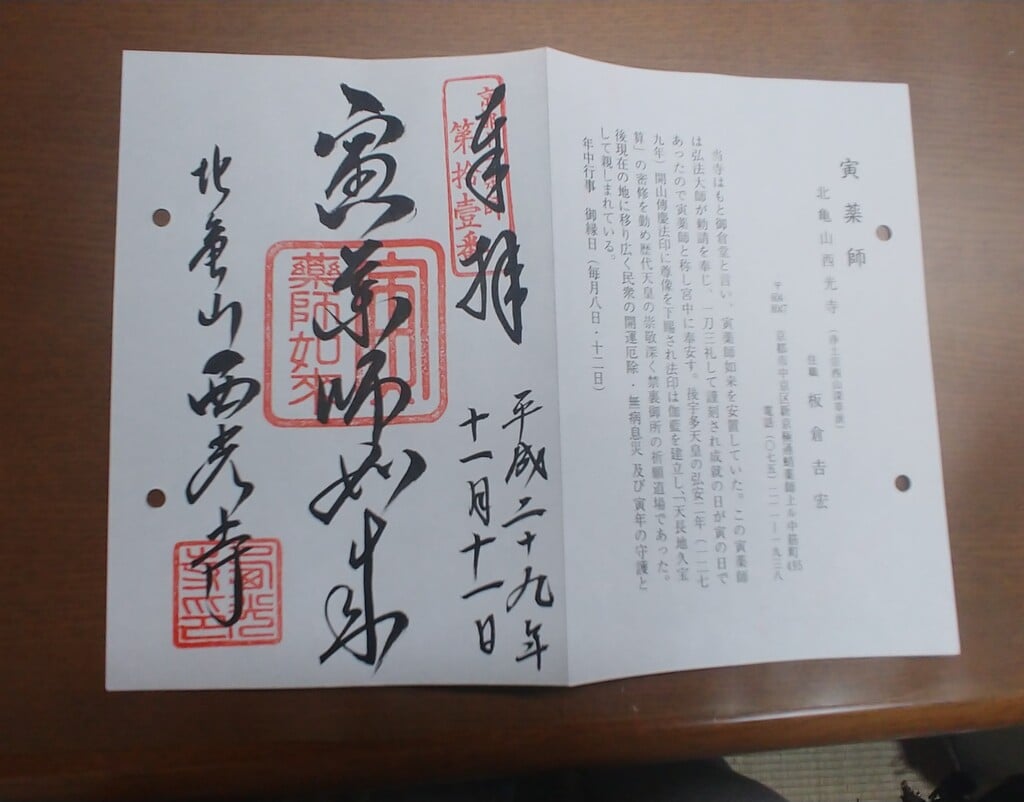 寅薬師
北亀山西光寺（浄土宗西山深草派）
住職 板倉吉宏
〒604-8087 京都市中京区新京極通蛸薬師上ル中筋町495
電話（〇七五）二一一―一九三八
当寺はもと御倉堂と言い、寅薬師如来を安置していた。この寅薬師
は弘法大師が勅請を奉じ、一刀三礼して謹刻され成就の日が寅の日で
あったので寅薬師と称し宮中に奉安す。後宇多天皇の弘安二年（一二七
九年）開山傳慶法印に尊像を下賜され法印は伽藍を建立し、「天長地久宝
算」の密修を勤め歴代天皇の崇敬深く禁裏御所の祈願道場であった。
後現在の地に移り広く民衆の開運厄除・無病息災 及び寅年の守護と
して親しまれている。
年中行事 御縁日（毎月八日・十二日）
奉拝
第拾壹番
平成二十九年
十一月十一日
寅薬師如来
藥師如來
北亀山西光寺